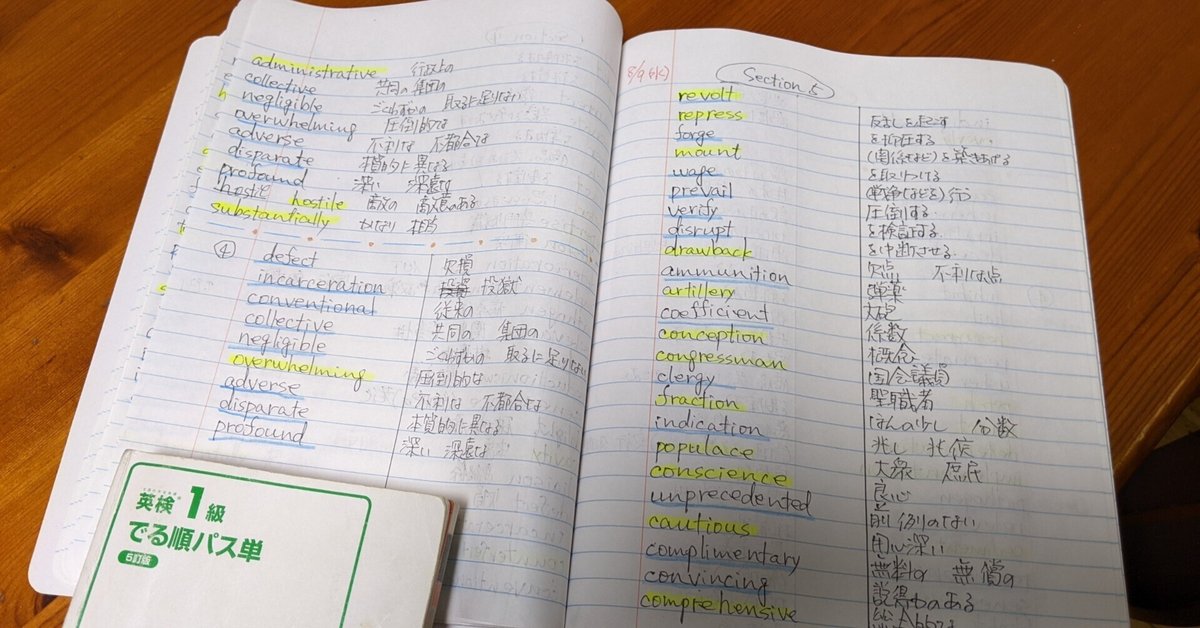 administrative 行政上の
collective 共同の 集団の
negligible ごくわずかの 取るに足りない
overwhelming 圧倒的な
adverse 不利な 不都合な
disparate 本質的に異なる
profound 深い 深遠な
hostile hostile 敵の 敵意のある
substantially かなり 相当
④ defect 欠損
incarceration 投獄
conventional 従来の
collective 共同の 集団の
negligible ごくわずかの 取るに足りない
overwhelming 圧倒的な
adverse 不利な 不都合な
disparate 本質的に異なる
profound 深い 深遠な
英検1級
でる順パス単
5訂版
Section 5
revolt
repress 反乱を起こす
forge を抑圧する
mount (関係など)を築きあげる
wage を取りつける
prevail (戦争などを)行う
verify 圧倒する
disrupt を検証する
drawback を中断させる
ammunition 欠点 不利な点
artillery 弾薬
coefficient 大砲
conception 係数
congressman 概念
clergy 国会議員
fraction 聖職者
indication ほんの少し 分数
populace 兆し 兆候
conscience 大衆 庶民
unprecedented 良心
cautious 前例のない
complimentary 用心深い
convincing 無料の 無償の
comprehensive 説得力のある